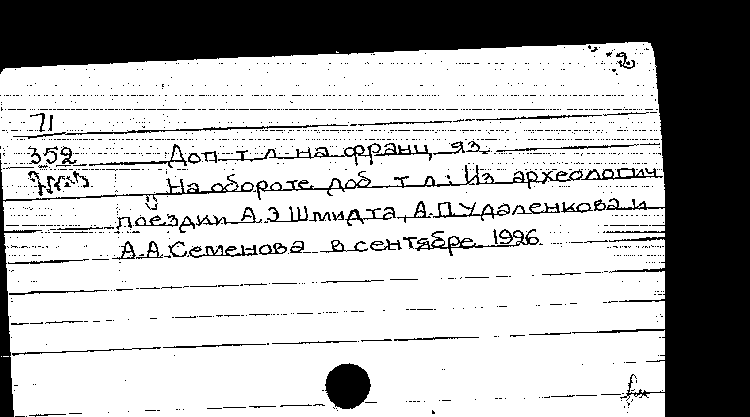 2
71
352 Доп. т. л. на франц. яз.
На обороте доб. т. л.: Из археологич.
поездки А.Э Шмидта, А.П Удаленкова и
А.А. Семенова в сентябре 1926